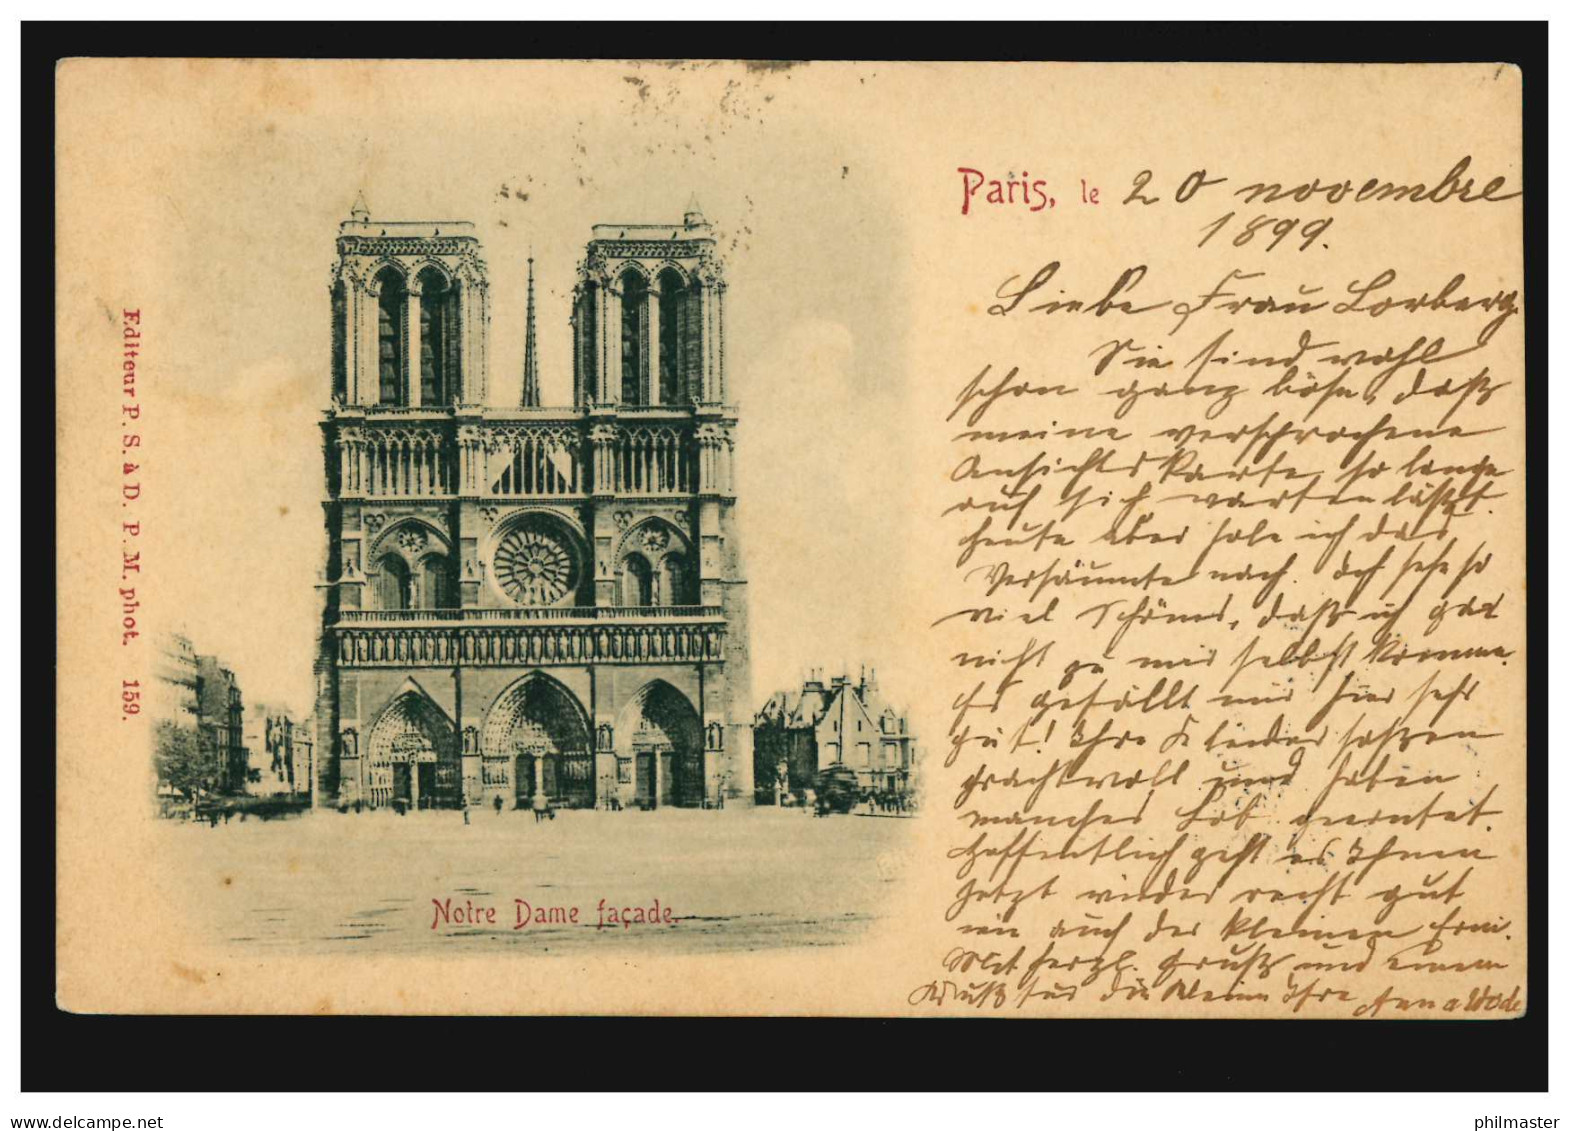 Paris, le 20 novembre
1899.
Liebe Frau Lorberg.
Sie sind wohl
schon ganz böse, daß
meine versprochene
Ansichtskarte so lange
auf sich warten läßt.
Heute aber hole ich das
Versäumte nach. Ich sehe so
viel Schönes, daß ich gar
nicht zu mir selbst komme.
Es gefällt mir hier sehr
gut! Ihre Kleider saßen
prachtvoll und haben
manches Lob geerntet.
Hoffentlich geht es Ihnen
jetzt wieder recht gut
wie auch der kleinen Erni.
Mit herzl. Gruß und einem
Kuß für die Kleine Ihre Anna Wode
Notre Dame façade.
Editeur P. S. à D. P. M. phot. 159.
delcampe.net
philmaster